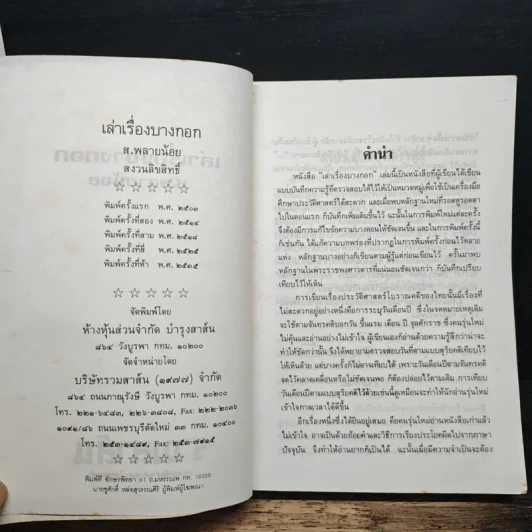 เล่าเรื่องบางกอก
ส.พลายน้อย
สงวนลิขสิทธิ์
พิมพ์ครั้งแรก พ.ศ. ๒๕๐๑
พิมพ์ครั้งที่สอง พ.ศ. ๒๕๑๔
พิมพ์ครั้งที่สาม พ.ศ. ๒๕๑๘
พิมพ์ครั้งที่สี่ พ.ศ. ๒๕๒๕
พิมพ์ครั้งที่ห้า พ.ศ. ๒๕๓๕
จัดพิมพ์โดย
ห้างหุ้นส่วนจำกัด บำรุงสาส์น
๘๖๔ วังบูรพา กทม. ๑๐๒๐๐
จัดจำหน่ายโดย
บริษัทรวมสาส์น (๑๙๗๗) จำกัด
๘๖๔ ถนนภาณุรังษี วังบูรพา กทม. ๑๐๒๐๐
โทร. ๒๒๑-๖๔๘๓, ๒๒๖-๓๘๐๘, Fax: ๒๒๒-๒๐๓๖
๑๐๙๑/๘๖ ถนนเพชรบุรีตัดใหม่ ๓๓ กท. ๑๐๔๐๐
โทร. ๒๕๓-๑๔๘๙, Fax: ๒๕๓-๗๙๑๕
คำนำ
หนังสือ "เล่าเรื่องบางกอก" เล่มนี้เป็นหนังสือที่ผู้เขียนได้เขียน
แบบบันทึกความรู้ที่ตรวจสอบได้ไว้ให้เป็นหมวดหมู่เพื่อใช้เป็นเครื่องมือ
ศึกษาประวัติศาสตร์ได้สะดวก และเมื่อพบหลักฐานใหม่ที่รอดหูรอดตา
ไปในตอนแรก ก็บันทึกเพิ่มเติมขึ้นไว้ ฉะนั้นในการพิมพ์ใหม่แต่ละครั้ง
จึงต้องมีการแก้ไขข้อความบางตอนให้ชัดเจนขึ้น และในการพิมพ์ครั้งนี้
ก็เช่นกัน ได้แก้ความบกพร่องที่ปรากฏในการพิมพ์ครั้งก่อนไว้หลาย
แห่ง หลักฐานบางอย่างก็เขียนตามผู้รู้แต่ก่อนเขียนไว้ ครั้นมาพบ
หลักฐานในพระราชพงศาวดารที่แน่นอนชัดเจนกว่า ก็บันทึกเปรียบ
เทียบไว้ให้เห็น
การเขียนเรื่องประวัติศาสตร์โบราณคดีของไทยนั้นมีเรื่องที่
ไม่สะดวกอยู่อย่างหนึ่งคือการระบุวันเดือนปี ซึ่งในจดหมายเหตุเดิม
จะใช้ตามจันทรคติบอกวัน ขึ้นแรม เดือน ปี จุลศักราช ซึ่งคนรุ่นใหม่
ไม่คุ้นและอ่านอย่างไม่เข้าใจ ผู้เขียนเองก็อ่านด้วยความรู้สึกว่าน่าจะ
ทำให้ชัดกว่านั้น จึงได้พยายามตรวจสอบวันที่ตามแบบสุริยคติเทียบไว้
ให้เห็นด้วย แต่บางครั้งก็ไม่อาจเทียบได้ เพราะวันเดือนปีตามจันทรคติ
จดไว้คลาดเคลื่อนหรือไม่ชัดเจนพอ ก็ต้องปล่อยไว้ตามเดิม การเทียบ
วันเดือนปีตามแบบสุริยคติไว้ด้วยเช่นนี้ดูเหมือนจะทำให้นักอ่านรุ่นใหม่
เข้าใจกาลเวลาได้ดีขึ้น
อีกเรื่องหนึ่งซึ่งได้ยินอยู่เสมอ คือคนรุ่นใหม่อ่านหนังสือเก่าแล้ว
ไม่เข้าใจ อาจเป็นด้วยถ้อยคำและวิธีการเรียงประโยคผิดไปจากภาษา
ปัจจุบัน จึงทำให้อ่านยากก็เป็นได้ ฉะนั้นเมื่อมีความจำเป็นจะต้อง